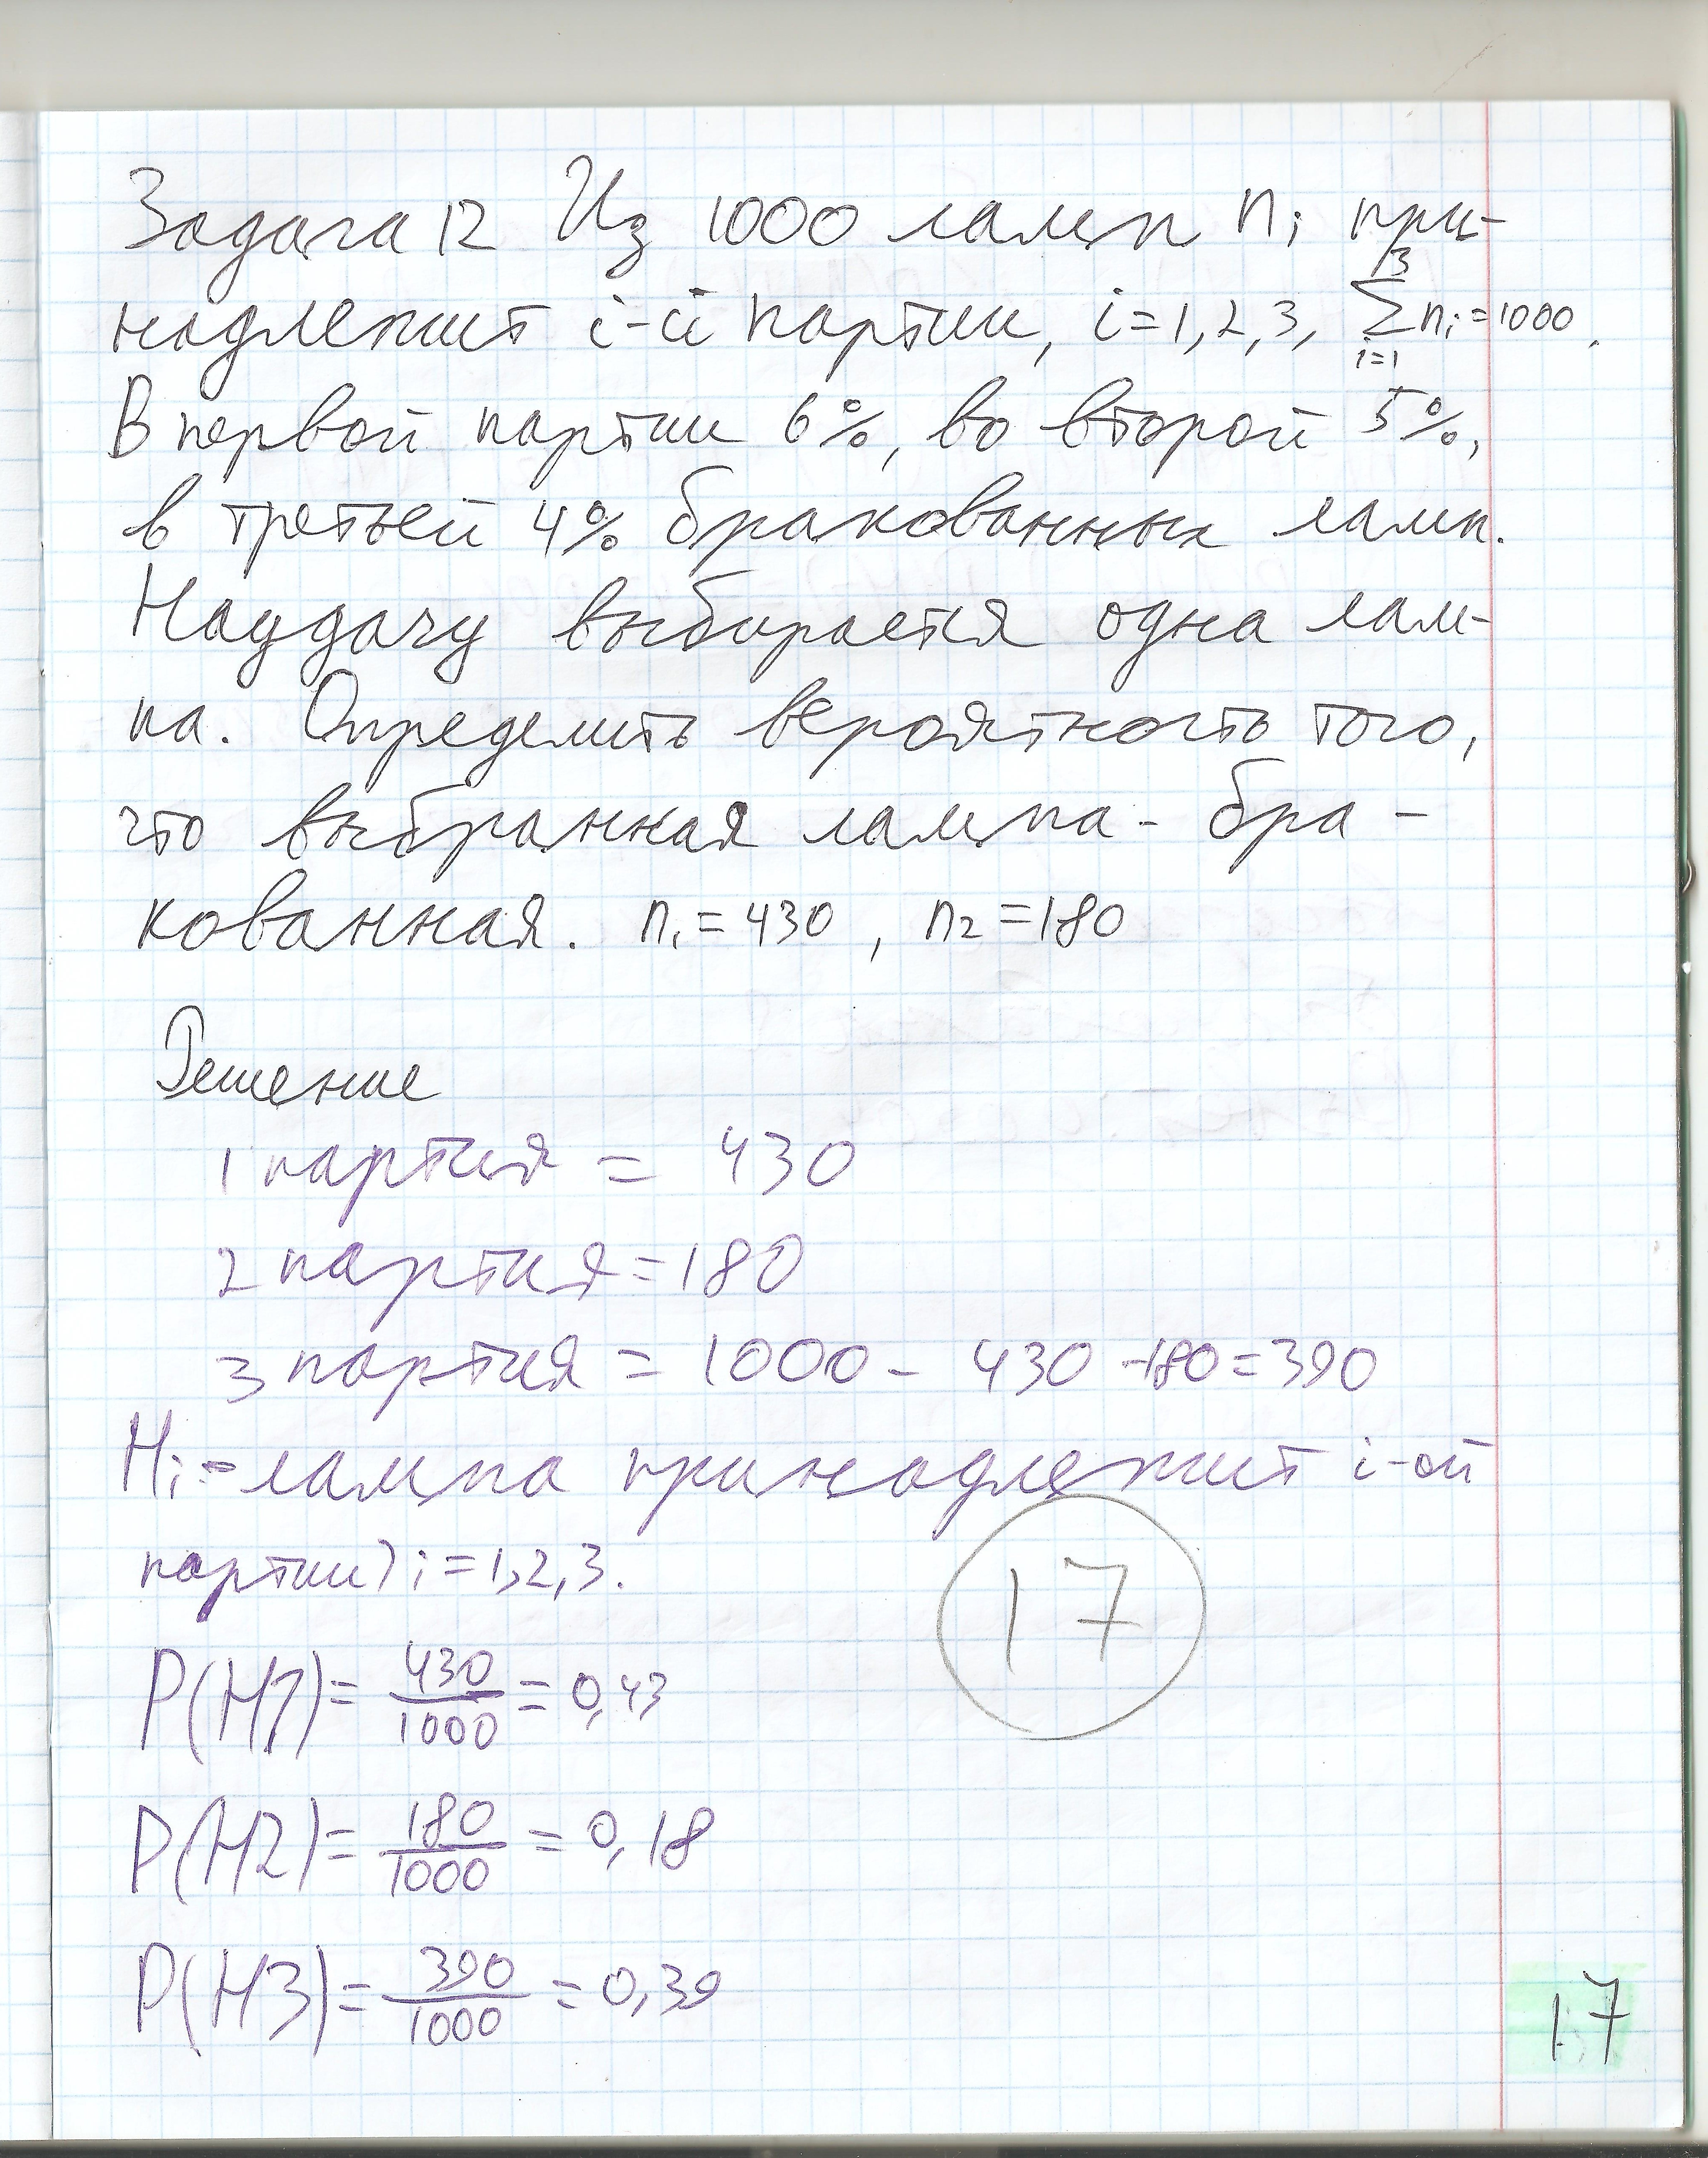 Задача 12 Из 1000 ламп nᵢ при-
надлежит i-й партии, i=1,2,3, ∑³ᵢ₌₁ nᵢ=1000.
В первой партии 6%, во второй 5%,
в третьей 4% бракованных ламп.
Наудачу выбирается одна лам-
па. Определить вероятность того,
что выбранная лампа - бра-
кованная. n₁=430, n₂=180
Решение
1 партия = 430
2 партия = 180
3 партия = 1000 - 430 - 180 = 390
Hᵢ - лампа принадлежит i-ой
партии) i=1,2,3.
17
P(H1) = 430/1000 = 0,43
P(H2) = 180/1000 = 0,18
P(H3) = 390/1000 = 0,39
17